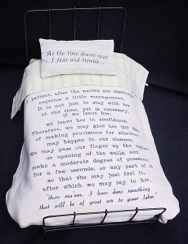 As the time draws near
I fear and tremble...
patient, after the waters are
requires a little management.
It is not just to stay with her
at the time, yet is necessary,
if we leave her,
we leave her in confidence.
Therefore, we may give her the idea
of making provisions for
may happen in our absence;
we may pass our finger up the vagina
or opening of the womb, and
make a moderate degree of pressure,
for a few seconds, on any part of it
so that she may just feel it.
After which we may say to her,
"There ma'am, I have done something
that will be of great use to your labor."